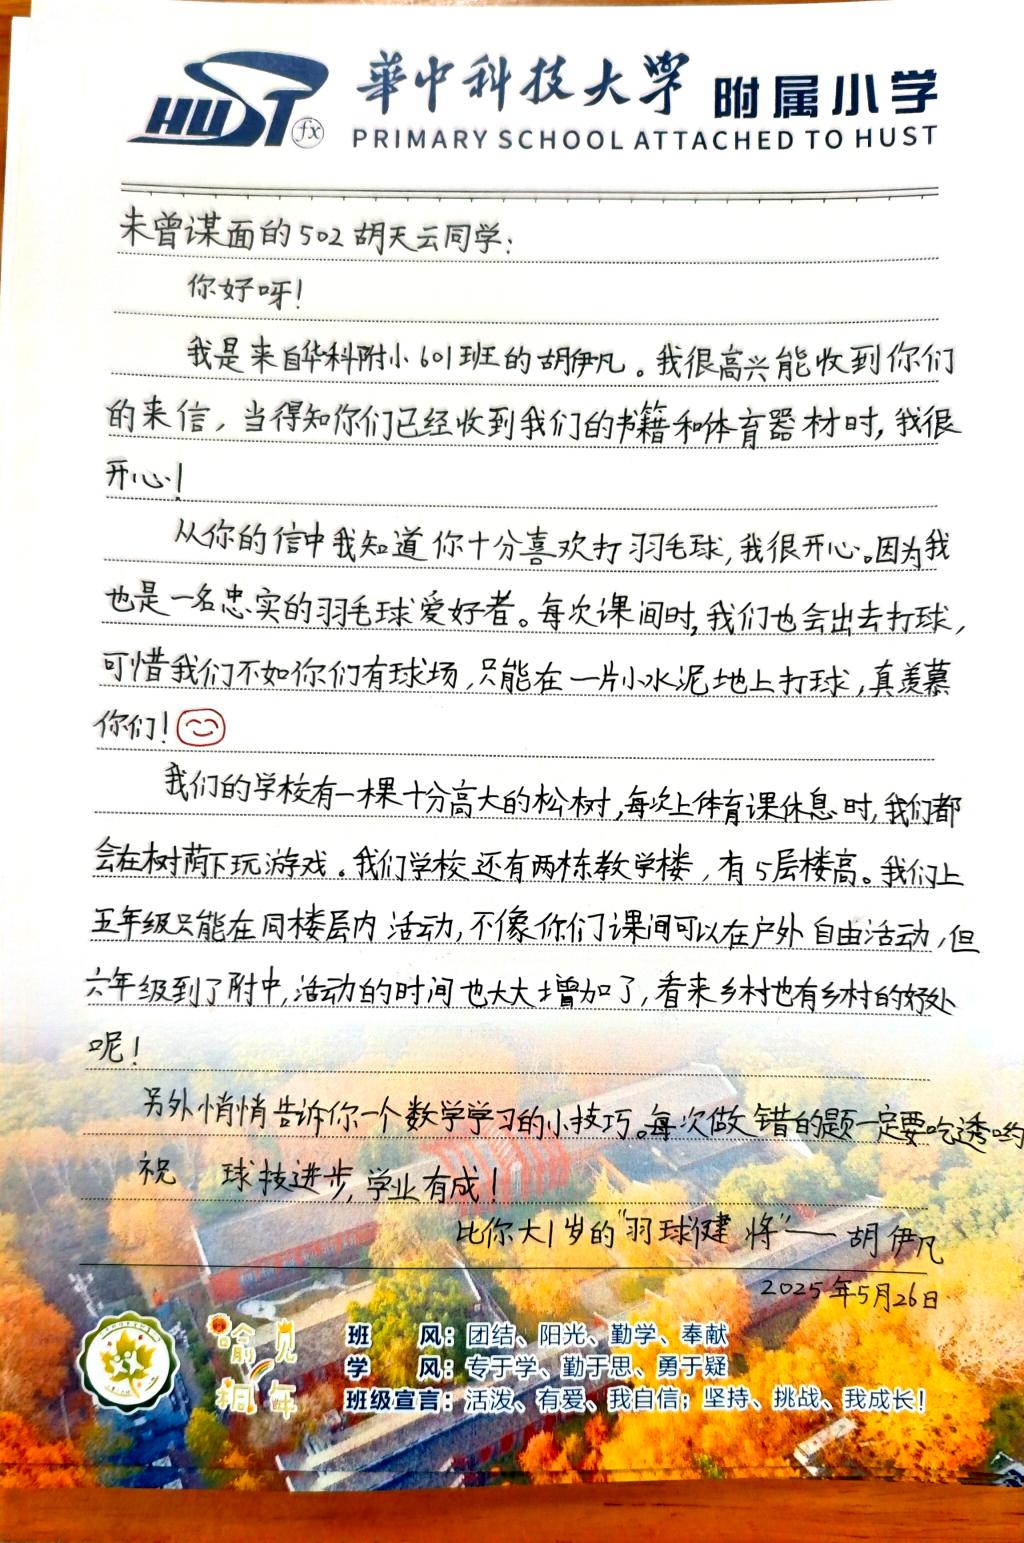 HUST
fx
華中科技大學 附属小学
PRIMARY SCHOOL ATTACHED TO HUST
未曾谋面的502胡天云同学:
你好呀!
我是来自华科附小601班的胡伊凡。我很高兴能收到你们
的来信,当得知你们已经收到我们的书籍和体育器材时,我很
开心!
从你的信中我知道你十分喜欢打羽毛球,我很开心。因为我
也是一名忠实的羽毛球爱好者。每次课间时,我们也会出去打球,
可惜我们不如你们有球场,只能在一片小水泥地上打球,真羡慕
你们!
我们的学校有一棵十分高大的松树,每次上体育课休息时,我们都
会在树荫下玩游戏。我们学校还有两栋教学楼,有5层楼高。我们上
五年级只能在同楼层内活动,不像你们课间可以在户外自由活动,但
六年级到了附中,活动的时间也大大增加了,看来乡村也有乡村的好处
呢!
另外悄悄告诉你一个数学学习的小技巧。每次做错的题一定要吃透哟
祝 球技进步,学业有成!
比你大1岁的"羽球健将"——胡伊凡
2025年5月26日
喻见
桐年
班 风:团结、阳光、勤学、奉献
学 风:专于学、勤于思、勇于疑
班级宣言:活泼、有爱、我自信;坚持、挑战、我成长!